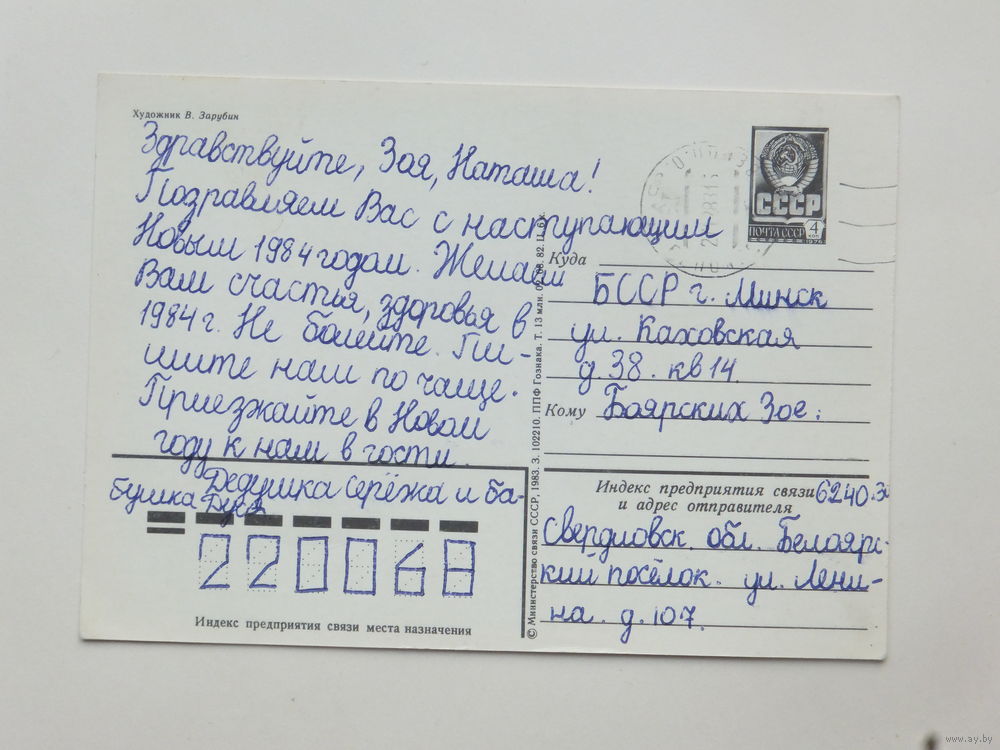 Художник В. Зарубин
Здравствуйте, Зоя, Наташа!
Поздравляем Вас с наступающим
Новым 1984 годом. Желаем
Вам счастья, здоровья в
1984 г. Не болейте. Пи-
шите нам по чаще.
Приезжайте в Новом
году к нам в гости.
Дедушка Серёжа и ба-
бушка
220068
Индекс предприятия связи места назначения
© Министерство связи СССР, 1983. З. 102210. ППФ Гознака. Т. 13 млн.
СССР
ПОЧТА СССР
4
КОП
1976
Куда
БССР г. Минск
ул. Каховская
д. 38. кв 14.
Кому Боярских Зое.
Индекс предприятия связи
и адрес отправителя
Свердловск. обл. Белояр-
ский посёлок. ул. Лени-
на. д. 107.
www.ay.by